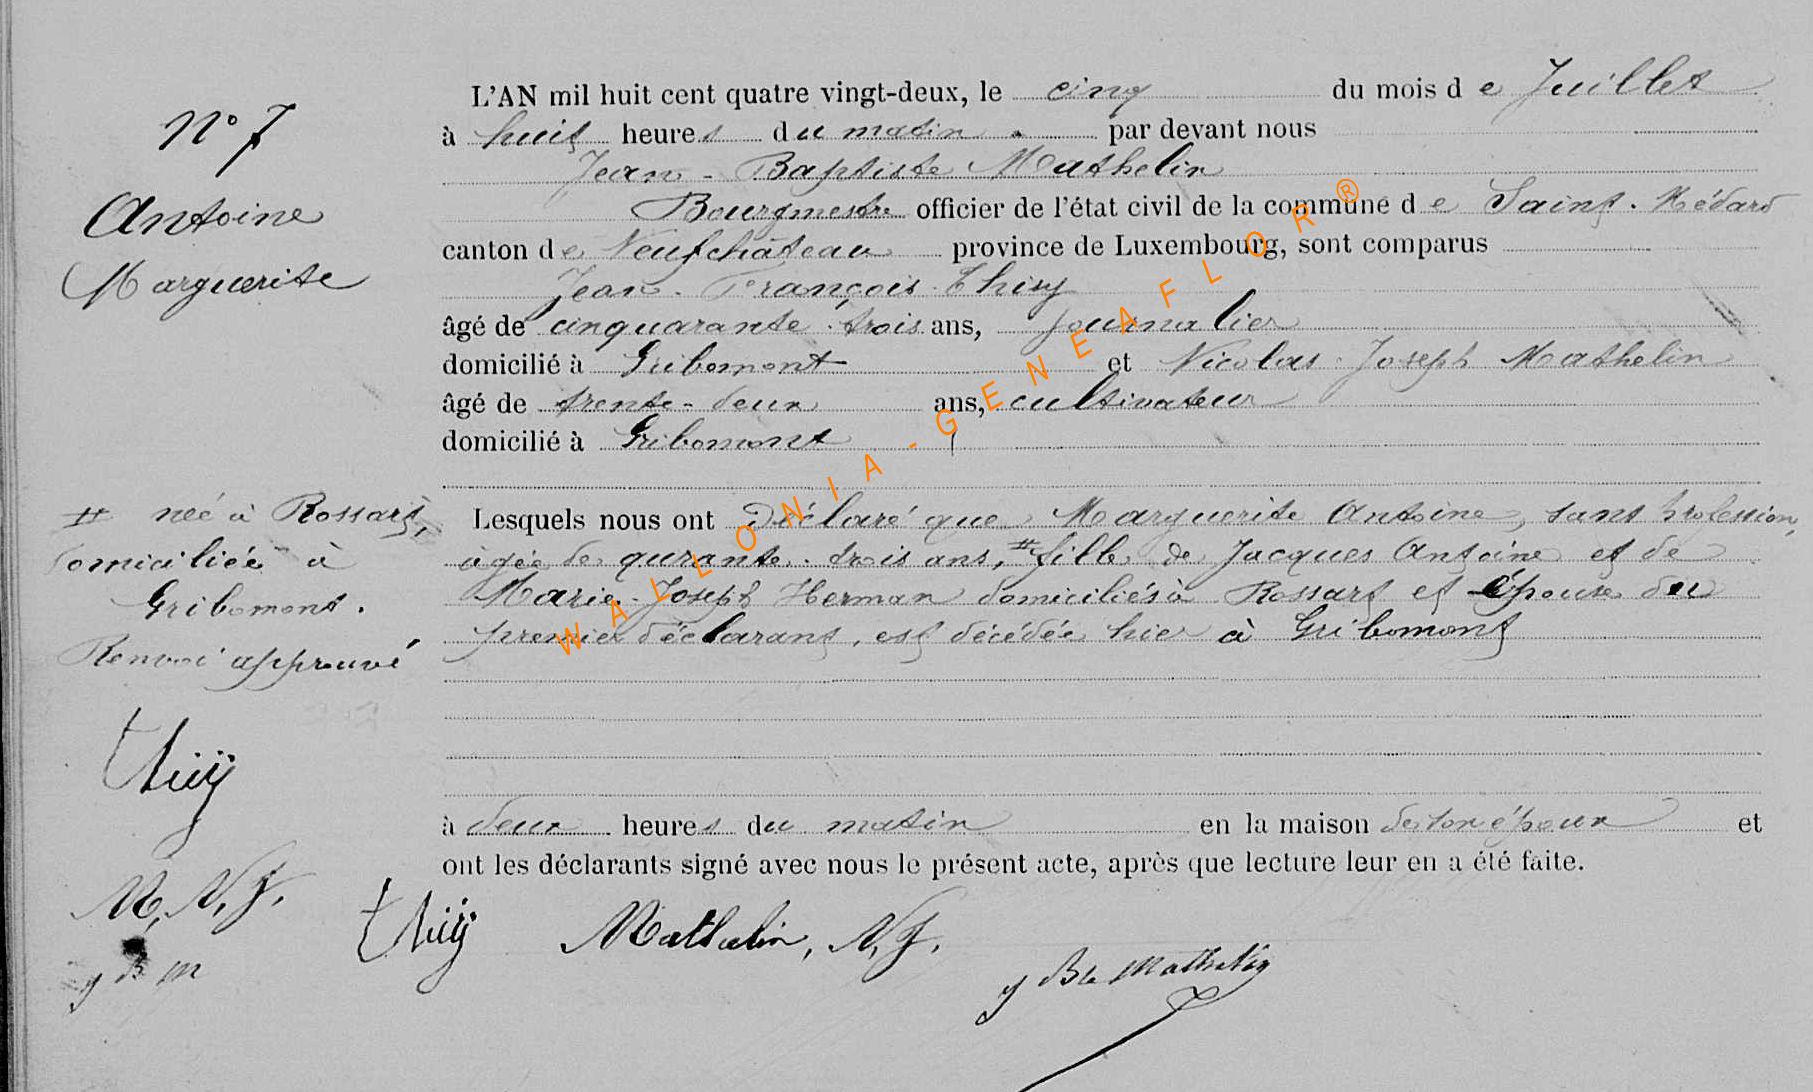 N° 7
Antoine
Marguerite
L'AN mil huit cent quatre vingt-deux, le cinq du mois de Juillet
à huit heures du matin par devant nous
Jean-Baptiste Mathelin
Bourgmestre officier de l'état civil de la commune de Saint-Médard
canton de Neufchâteau province de Luxembourg, sont comparus
Jean-François Thiry
âgé de cinquarante-trois ans, journalier
domicilié à Gribomont et Nicolas-Joseph Mathelin
âgé de trente-deux ans, cultivateur
domicilié à Gribomont
Lesquels nous ont Déclaré que Marguerite Antoine, sans profession,
âgée de qurante-trois ans, # fille de Jacques Antoine et de
Marie-Joseph Herman domiciliés à Rossart et épouse du
premier déclarant, est décédée hier à Gribomont
# née à Rossart,
domiciliée à
Gribomont.
Renvoi approuvé
Thiry
M, N, J.
J B M
à deux heures du matin en la maison de son époux et
ont les déclarants signé avec nous le présent acte, après que lecture leur en a été faite.
Thiry Mathelin, N, J. J Bte Mathelin
WALLONIA-GENEAFLOR®